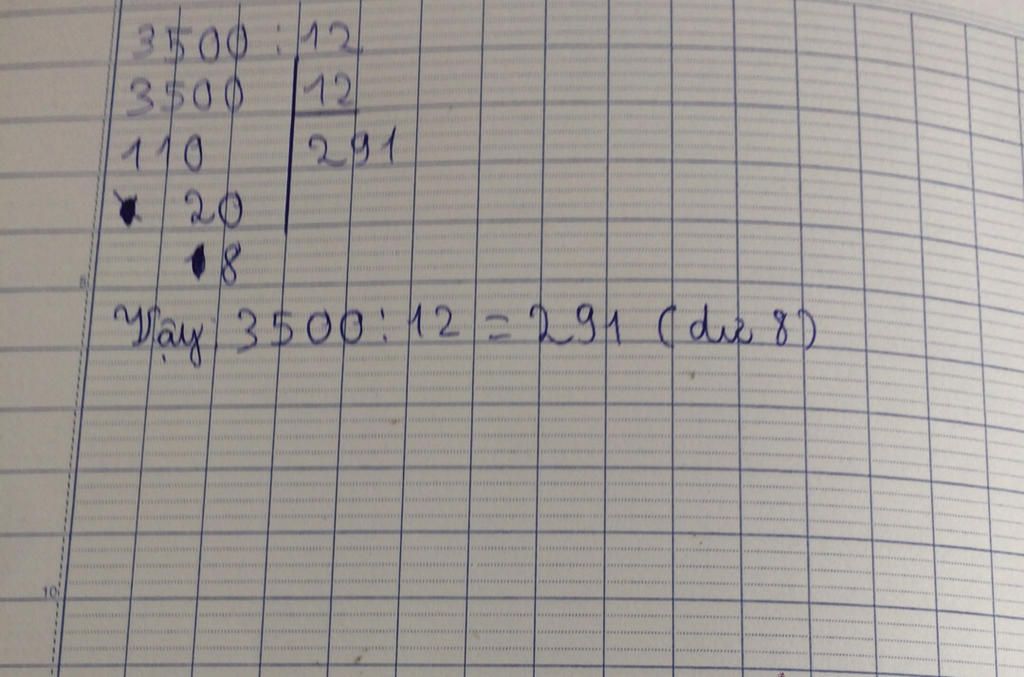 3500 : 12
3500 12
110 291
20
8
Vậy 3500 : 12 = 291 (dư 8)
10